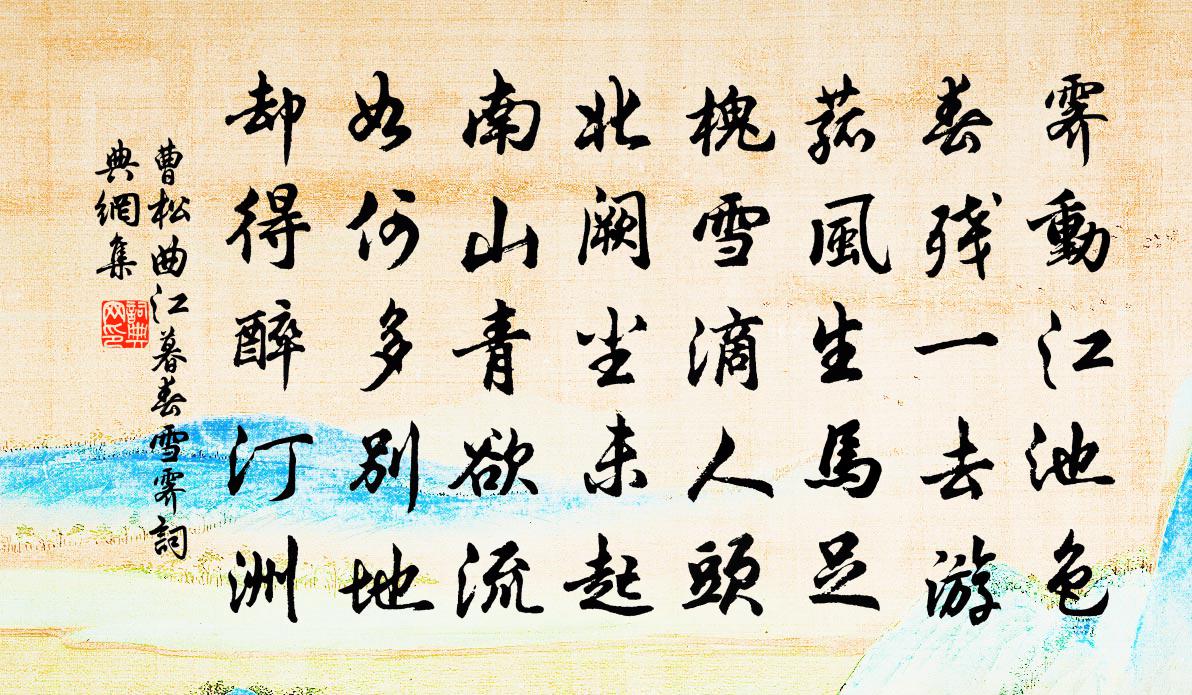 霁動江池色
春残一去游
菰風生馬足
槐雪滴人頭
北阙尘未起
南山青欲流
如何多別地
却得醉汀洲
曹松曲江暮春雪霁詞
典網集
詞典
网印